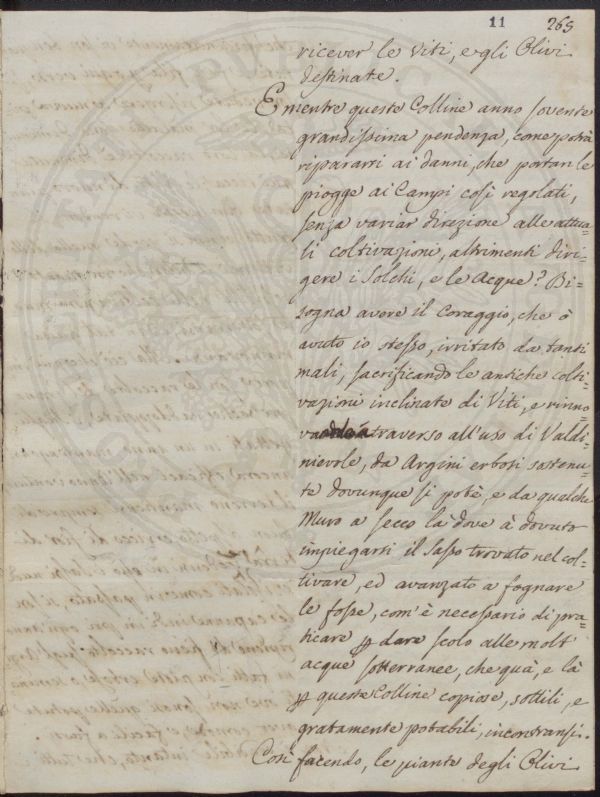 11 265
ricever le Viti, e gli Olivi
destinate.
E mentre queste Colline anno sovente
grandissima pendenza, come potrà
ripararsi ai danni, che portan le
piogge ai Campi così regolati,
senza variar direzione alle attua-
li coltivazioni, altrimenti diri-
gere i Solchi, e le Acque? Bi-
sogna avere il Coraggio, che ò
avuto io stesso, irritato da tanti
mali, sacrificando le antiche colti-
vazioni inclinate di Viti, e rinno-
va a traverso all'uso di Valdi-
nievole, da Argini erbosi sostenu-
te dovunque si potè, e da qualche
Muro a secco là dove à dovuto
impiegarsi il Sasso trovato nel col-
tivare, ed avanzato a fognare
le fosse, com'è necessario di pra-
ticare p dare scolo alle molt'
acque sotterranee, che quà, e là
p queste Colline copiose, sottili, e
gratamente potabili, incontransi.
Così facendo, le piante degli Olivi